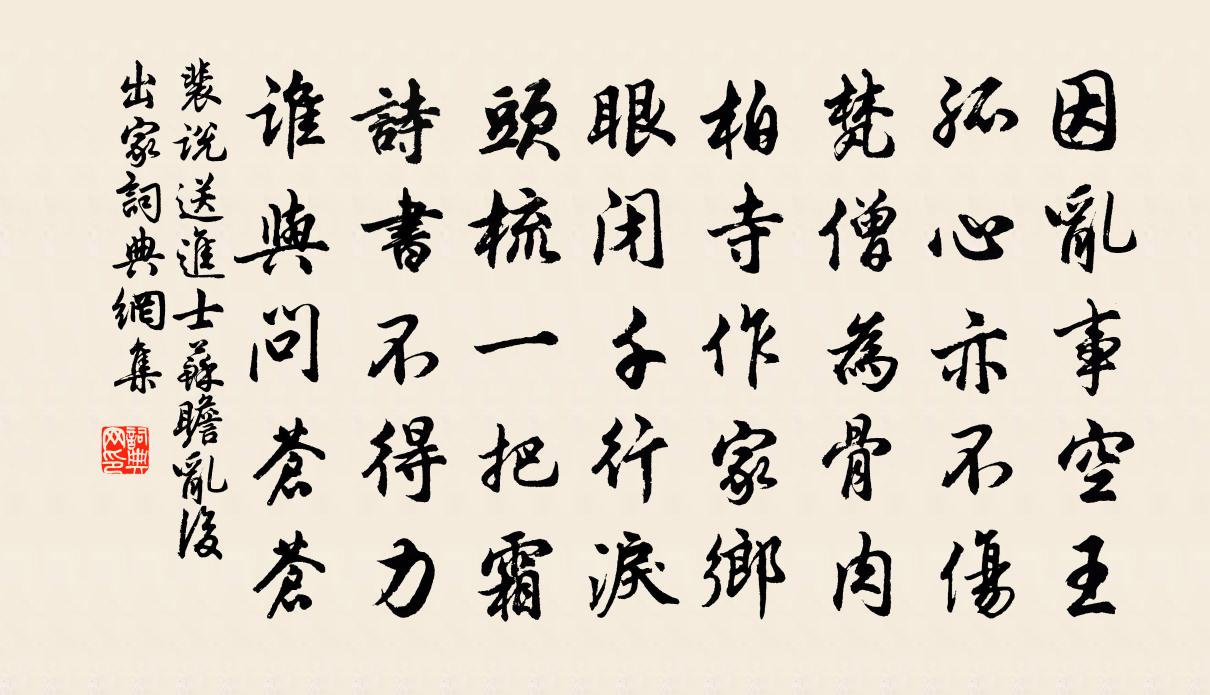 因亂事空王
孤心亦不傷
梵僧為骨肉
柏寺作家鄉
眼閉千行淚
頭梳一把霜
詩書不得力
誰與問蒼蒼
裴說送進士蘇瞻亂後
出家詞典網集
詞典
网印